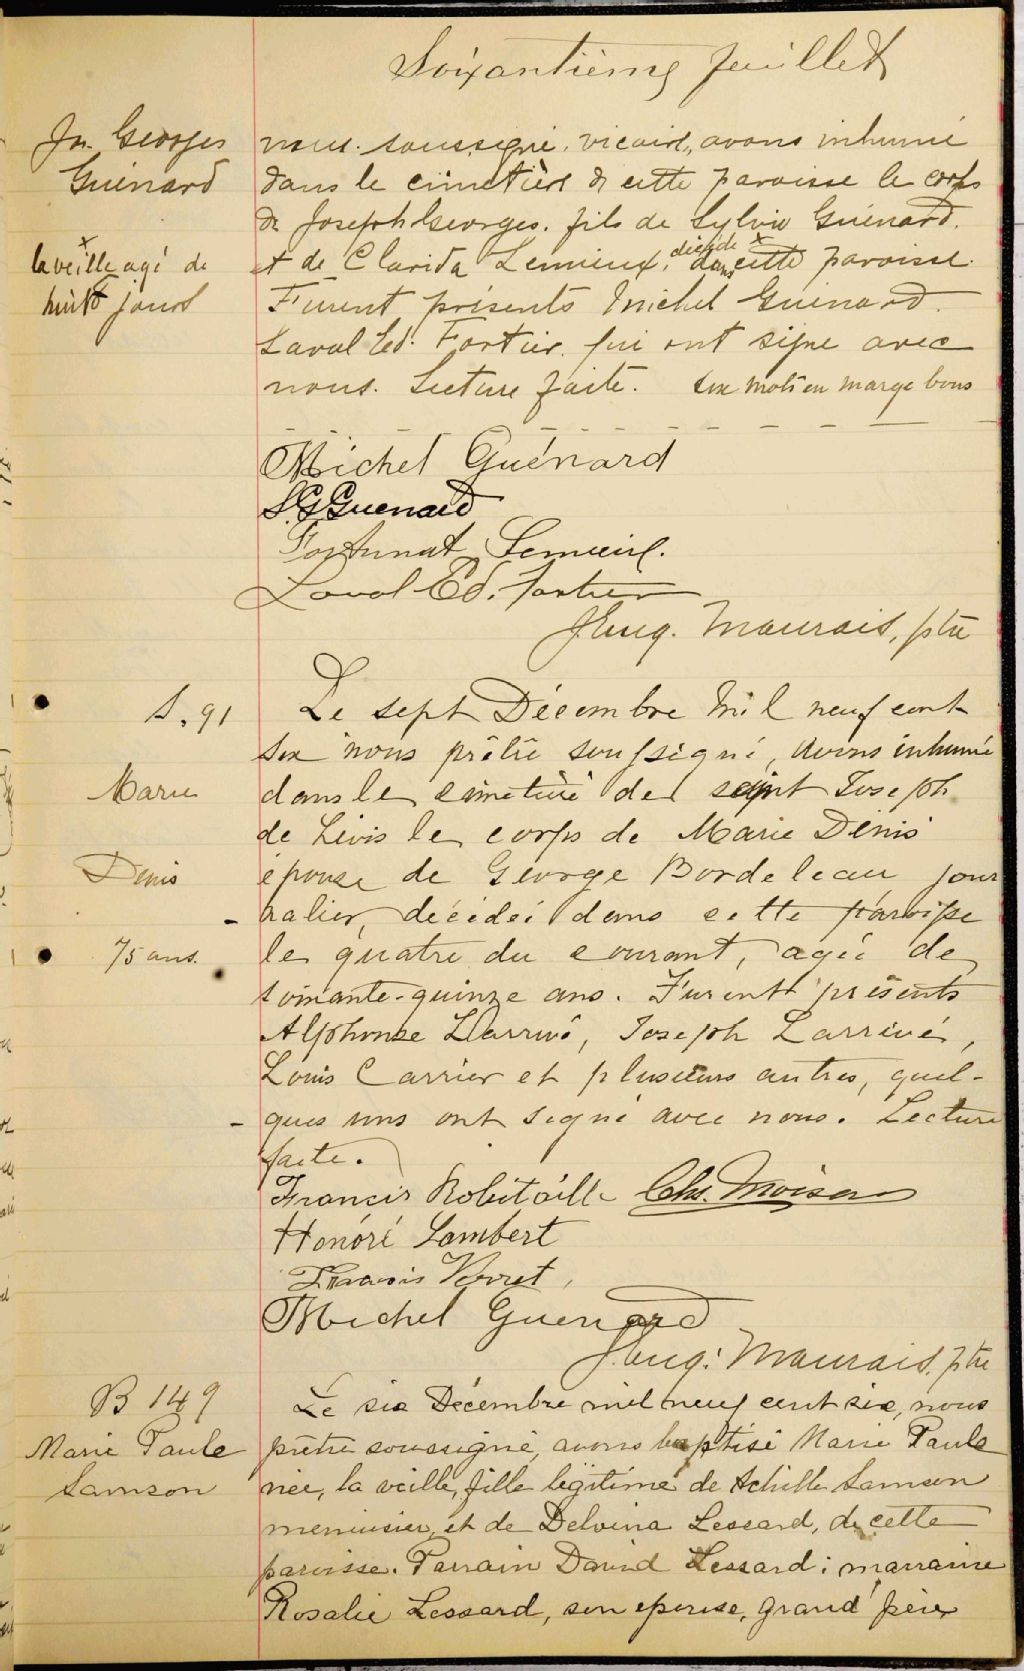 Soixantième feuillet
Js. Georges
Guénard
la veille agé de
huit jours
nous soussigné, vicaire, avons inhumé
dans le cimetière de cette paroisse le corps
de Joseph Georges, fils de Sylvio Guénard
et de Clarida Lemieux, décédé dans cette paroisse.
Furent présents Michel Guénard
Laval Ed. Fortier qui ont signé avec
nous. Lecture faite. Six mots en marge bons
Michel Guénard
S.G Guenard
Fortunat Lemieux.
Laval Ed. Fortier
J Eug. Maurais, ptre
S. 91
Marie
Denis
75 ans.
Le sept Décembre mil neuf cent
six nous prêtre soussigné, avons inhumé
dans le cimetière de saint Joseph
de Lévis le corps de Marie Denis
épouse de George Bordeleau jour
nalier, décédée dans cette paroisse
le quatre du courant, agée de
soixante-quinze ans. Furent présents
Alphonse Larrivé, Joseph Larrivée,
Louis Carrier et plusieurs autres, quel-
ques uns ont signé avec nous. Lecture
faite.
Francis Robitaille Chs. Moisan
Honoré Lambert
Francis Verret
Michel Guenard
J. Eug. Maurais, ptre
B 149
Marie Paule
Samson
Le six Décembre mil neuf cent six, nous
prêtre soussigné, avons baptisé Marie Paule
née, la veille, fille légitime de Achille Samson
menuisier, et de Delvina Lessard, de cette
paroisse. Parrain David Lessard; marraine
Rosalie Lessard, son epouse, grand père